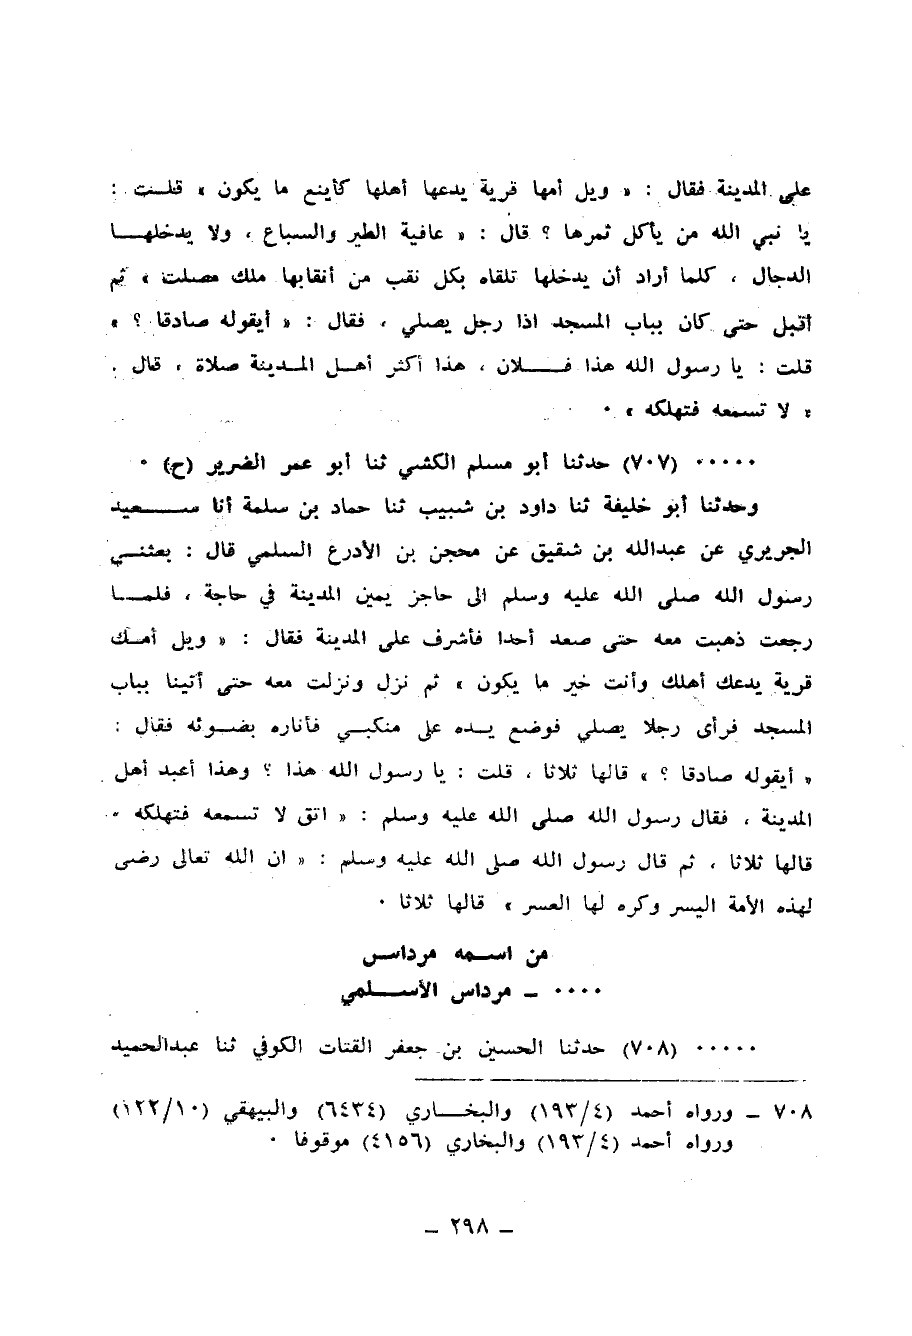 على المدينة فقال : « ويل أمها قرية يدعها أهلها كأينع ما يكون » قلـت :
يا نبي الله من يأكل ثمرها ؟ قال : « عافية الطير والسباع ، ولا يدخلهـــا
الدجال ، كلما أراد أن يدخلها تلقاه بكل نقب من أنقابها ملك مصلت » ثم
أقبل حتى كان بباب المسجد اذا رجل يصلي ، فقال : « أيقوله صادقا ؟ »
قلت : يا رسول الله هذا فــــلان ، هذا أكثر أهـل المـدينة صلاة ، قال .
« لا تسمعه فتهلكه » ٠
٠٠٠٠٠ (٧٠٧) حدثنا أبو مسلم الكشي ثنا أبو عمر الضرير (ح) ٠
وحدثنا أبو خليفة ثنا داود بن شبيب ثنا حماد بن سلمة أنا ســـعيد
الجريري عن عبدالله بن شقيق عن محجن بن الأدرع السلمي قال : بعثنـي
رسول الله صلى الله عليه وسلم الى حاجز يمين المدينة في حاجة ، فلمـــا
رجعت ذهبت معه حتى صعد أحدا فأشرف على المدينة فقال : « ويل أمـك
قرية يدعك أهلك وأنت خير ما يكون » ثم نزل ونزلت معه حتى أتينا بباب
المسجد فرأى رجلا يصلي فوضع يـده على منكبـي فأناره بضـوئه فقال :
« أيقوله صادقا ؟ » قالها ثلاثا ، قلت : يا رسول الله هذا ؟ وهذا أعبد أهل
المدينة ، فقال رسول الله صلى الله عليه وسلم : « اتق لا تسمعه فتهلكه ٠
قالها ثلاثا ، ثم قال رسول الله صلى الله عليه وسلم : « ان الله تعالى رضى
لهذه الأمة اليسر وكره لها العسر » قالها ثلاثا ٠
من اسـمه مرداس
٠٠٠٠ ــ مرداس الأســـلمي
٠٠٠٠٠ (٧٠٨) حدثنا الحسين بن جعفر القتات الكوفي ثنا عبدالحميد
٧٠٨ ــ ورواه أحمد (١٩٣/٤) والبخـــاري (٦٤٣٤) والبيهقي (١٢٢/١٠)
ورواه أحمد (١٩٣/٤) والبخاري (٤١٥٦) موقوفا ٠
ــ ٢٩٨ ــ